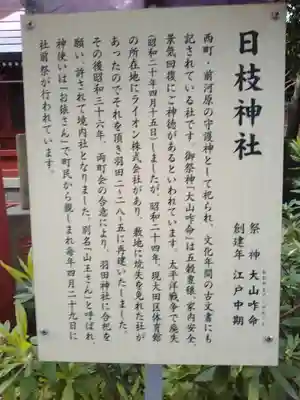 日枝神社
祭神 大山咋命
創建年 江戸中期
西町・前河原の守護神として祀られ、文化年間の古文書にも
記されている社です。御祭神「大山咋命」は五穀豊穣、家内安全、
景気回復にご神徳があるといわれています。太平洋戦争で焼失
(昭和二十年四月十五日)しましたが、昭和二十四年、現大田区体育館
の所在地にライオン株式会社があり、敷地に焼失を免れた社が
あったのでそれを頂き羽田二-二八-五に再建いたしました。
その後昭和三十六年、両町会の合意により、羽田神社に合祀を
願い、許されて境内社となりました。別名「山王さん」と呼ばれ、
神使いは「お猿さん」で町民から親しまれ毎年四月二十九日に
社前祭が行われています。